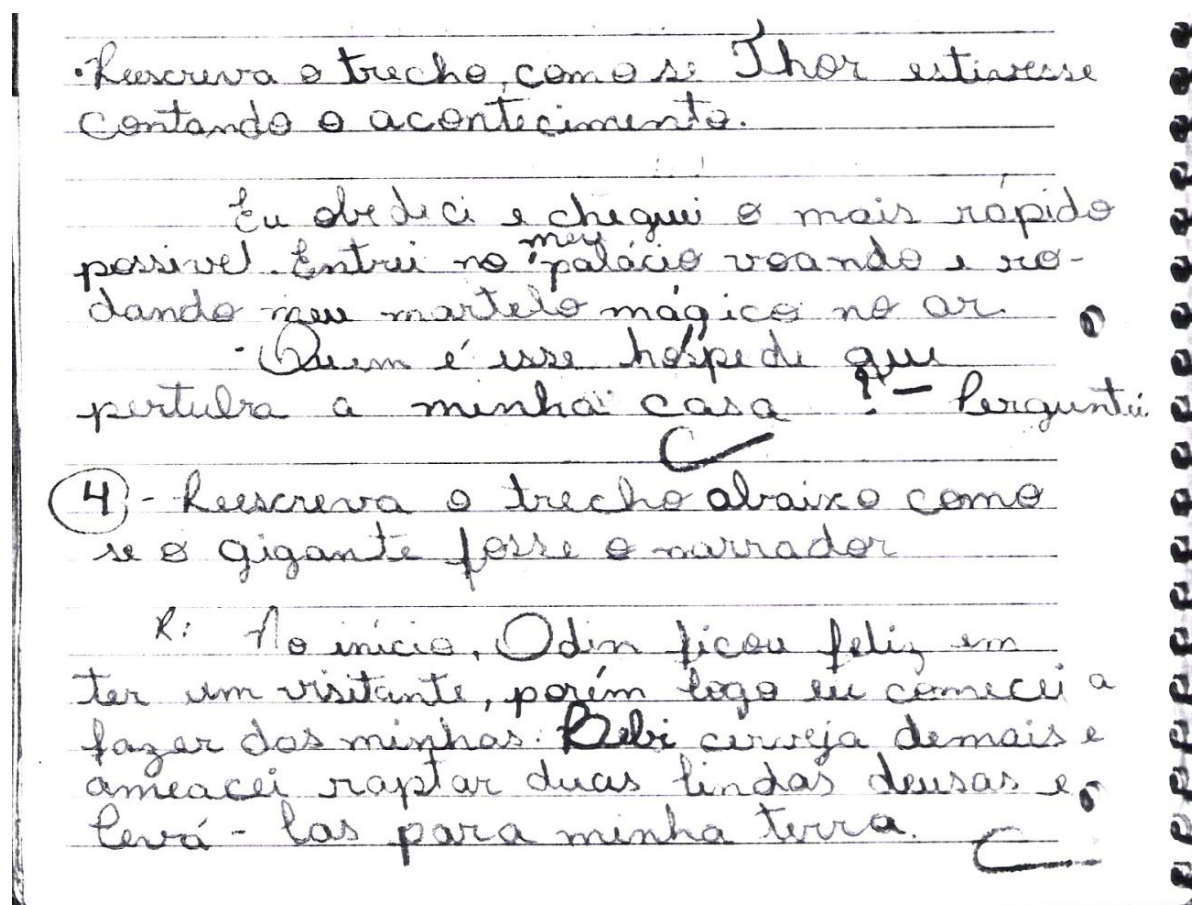 •Reescreva o trecho, como se Thor estivesse
contando o acontecimento.
Eu obedeci e cheguei o mais rápido
possivel. Entrei no meu palácio voando e ro-
dando meu martelo mágico no ar.
- Quem é esse hóspede que
pertulba a minha casa ?! - Perguntei.
4 - Reescreva o trecho abaixo como
se o gigante fosse o narrador
R: No início, Odin ficou feliz em
ter um visitante, porém logo eu comecei a
fazer das minhas. Bebi cerveja demais e
ameacei raptar duas lindas deusas e
levá-las para minha terra.